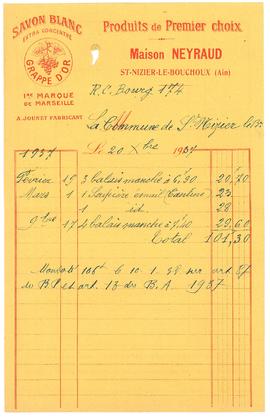 SAVON BLANC
EXTRA CONCENTRÉ
GRAPPE D'OR
1RE MARQUE
DE MARSEILLE
A. JOUNET FABRICANT
Produits de Premier choix
Maison NEYRAUD
ST-NIZIER-LE-BOUCHOUX (Ain)
R.C. Bourg 174
La Commune de St Nizier le B.
1937 Le 20 Xbre 1937
Février 15 3 balais manche à 6,90 20,70
Mars 1 1 Soupière émail (Cantine) 23
1 1 id. 28
9bre 17 4 balais manche à 7,40 29,60
Total 101,30
Mandat 106 6.10.1.38 sur art 37
du BP et art 13 des B.A 1937